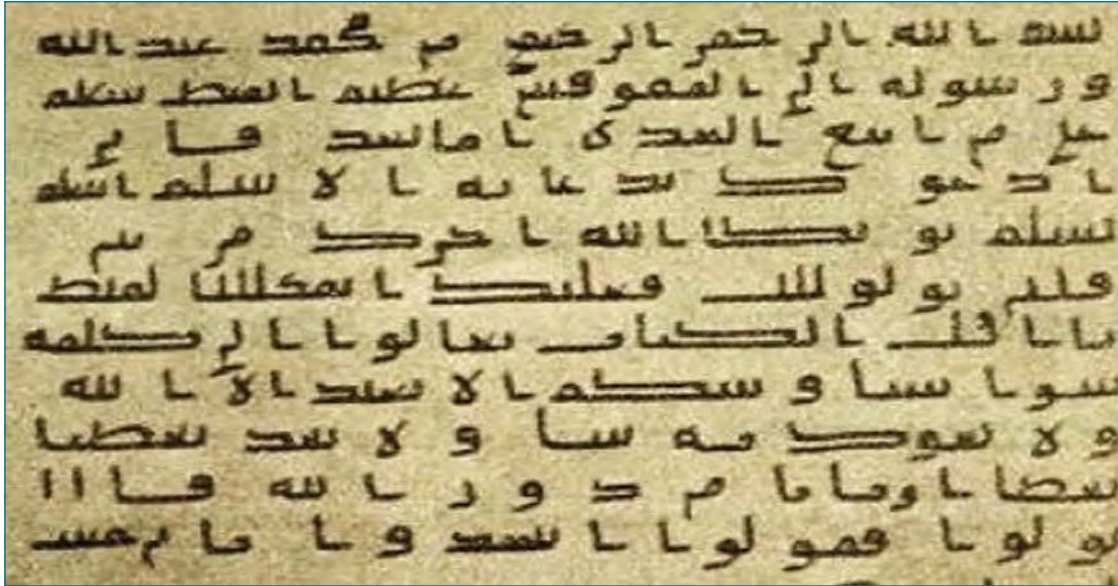 بسم الله الرحمن الرحيم من محمد عبد الله
ورسوله الى المقوقس عظيم القبط سلم
على من اتبع الهدى اما بعد فانى
ادعوك بدعاية الاسلم اسلم
تسلم يوتك الله اجرك مرتين
فان توليت فعليك القبط
يا الكتاب تعالوا الى كلمة
سوا بيننا وبينكم الا نعبد الا الله
ولا نشرك به شيا ولا يتخذ بعضنا
بعضا اربابا من دون الله فان
تولوا فقولوا اشهدوا بانا